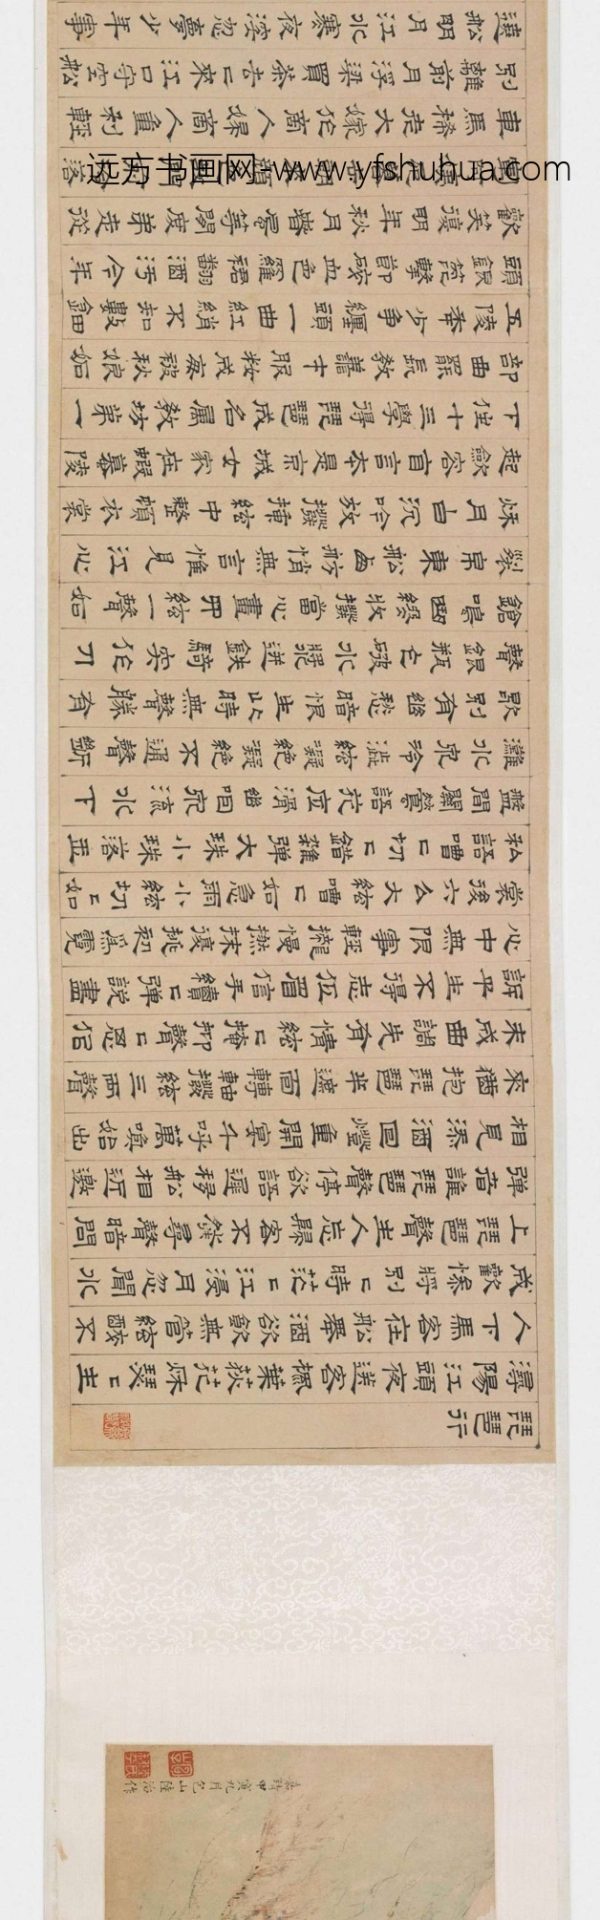 嘉靖甲寅九月包山陸治作
琵琶行
潯陽江頭夜送客楓葉荻花秋瑟々主
人下馬客在船舉酒欲飲無管絃醉不
成歡慘將別々時茫々江浸月忽聞水
上琵琶聲主人忘歸客不發尋聲暗問
彈者誰琵琶聲停欲語遲移船相近邀
相見添酒回燈重開宴千呼萬喚始出
來猶抱琵琶半遮面轉軸撥絃三兩聲
未成曲調先有情絃々掩抑聲々思似
訴平生不得志低眉信手續々彈說盡
心中無限事輕攏慢撚抹復挑初爲霓
裳後六么大絃嘈々如急雨小絃切々如
私語嘈々切々錯雜彈大珠小珠落玉
盤間關鶯語花底滑幽咽泉流水下
灘水泉冷澀絃凝絕凝絕不通聲漸
歇別有幽愁暗恨生此時無聲勝有
聲銀瓶乍破水漿迸鐵騎突出刀
鎗鳴曲終收撥當心畫四絃一聲如
裂帛東船西舫悄無言惟見江心
秋月白沉吟放撥插絃中整頓衣裳
起斂容自言本是京城女家在蝦蟇陵
下住十三學得琵琶成名屬教坊第一
部曲罷長教善才服粧成每被秋娘妬
五陵年少爭纏頭一曲紅綃不知數鈿
頭銀篦擊節碎血色羅裙翻酒污今年
歡笑復明年秋月春風等閒度弟走從
车馬稀老大嫁作商人婦商人重利輕
別離前月浮梁買茶去々來江口守空船
遠船明月江水寒夜深忽夢少年事
远方书画网-www.yfshuhua.com